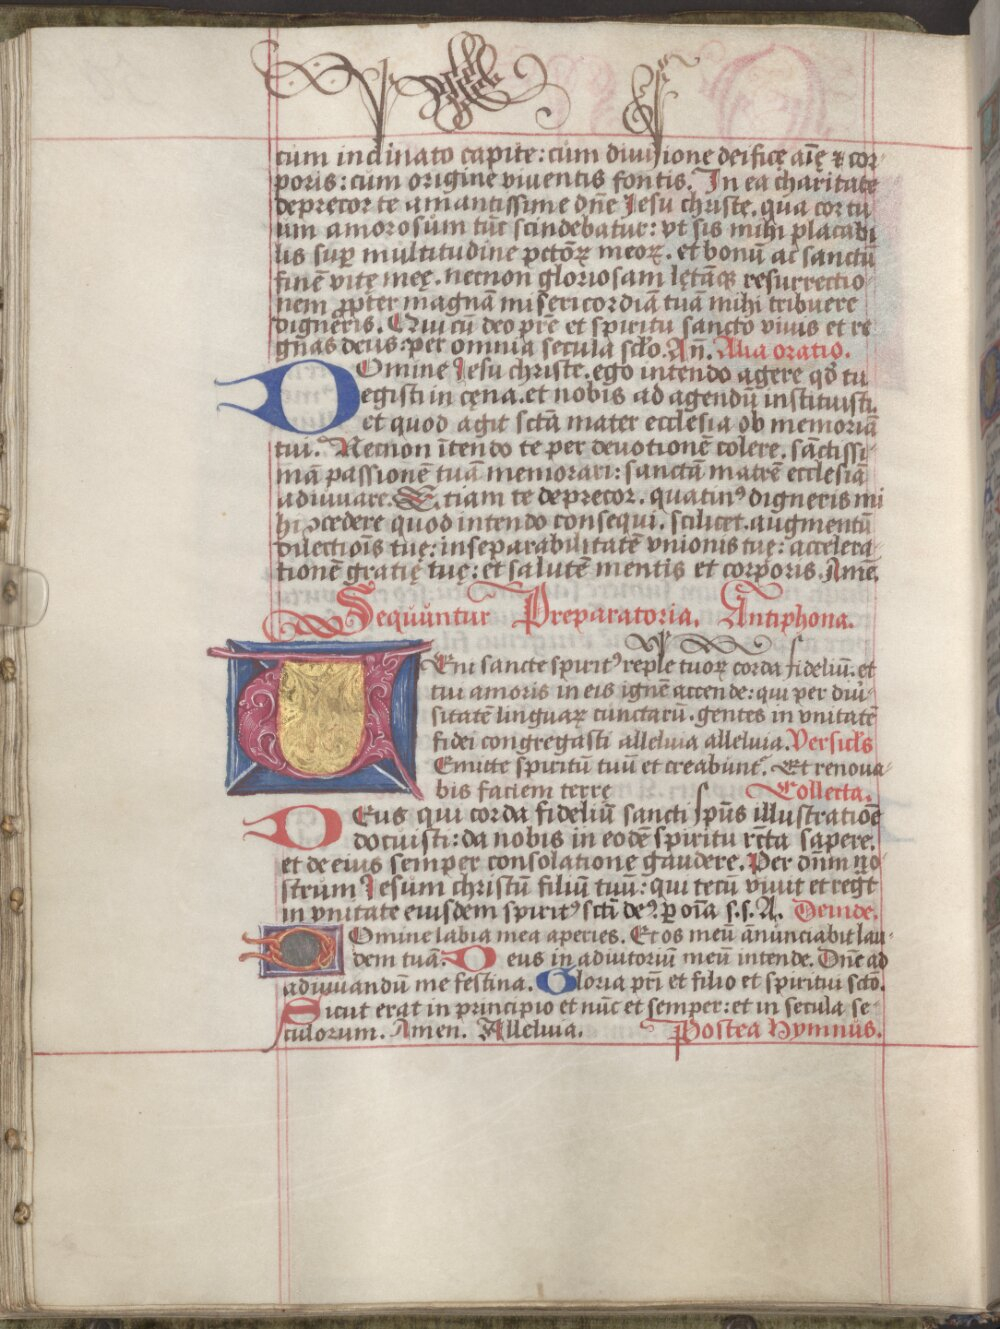 cum inclinato capite: cum diuisione deificę aīę ⁊ cor
poris: cum origine viuentis fontis. In ea charitate
deprecor te amantissime dñe Jesu christe. qua cor tu
um amorosum tūc scindebatur: vt sis mihi placabi
lis sup̱ multitudine pctōꝝ meoꝝ. et bonū ac sanctū
finē vitę meę. necnon gloriosam lętāqꝫ resurrectio
nem ꝓpter magnā misericordiā tuā mihi tribuere
digneris. Qui cū deo pr̄e et spiritu sancto viuis et re
gnas deus: per omnia secula sclo. Añ. Alia oratio.
Domine Jesu christe. ego intendo agere qđ tu
egisti in cęna. et nobis ad agendū instituisti.
et quod agit sctā mater ecclesia ob memoriā
tui. Necnon ītendo te per deuotionē colere. sāctissi
mā passionē tuā memorari: sanctā matrē ecclesiā
adiuuare. Etiam te deprecor. quatinꝰ digneris mi
hi ꝯcedere quod intendo consequi. scilicet. augmentū
dilectiōis tuę: inseparabilitatē vnionis tuę: accelera
tionē gratię tuę: et salutē mentis et corporis. Amē.
Sequuntur Preparatoria. Antiphona.
Veni sancte spiritꝰ reple tuoꝝ corda fidelīū. et
tui amoris in eis ignē accende: qui per diuˀ
sitatē linguaꝝ cunctarū. gentes in vnitatē
fidei congregasti alleluia alleluia. Versicls
Emitte spiritū tuū et creabunt᷑. Et renoua
bis faciem terre Collecta.
Deus qui corda fideliū sancti sp̄us illustratiōe
docuisti: da nobis in eodē spiritu rc̄ta sapere.
et de eius semper consolatione gaudere. Per dn̄m no
strum Jesum christū filiū tuū: qui tecū viuit et regt
in vnitate eiusdem spiritꝰ scti deꝰ. ꝑ oīa s. s. A. Deinde.
Domine labia mea aperies. Et os meū ānunciabit lau
dem tuā. Deus in adiutoriū meū intende. Dn̄e ad
adiuuandū me festina. Gloria pr̄i et filio et spiritui sctō.
Sicut erat in principio et nūc et semper: et in secula se
culorum. Amen. Alleluia. Postea hymnus.